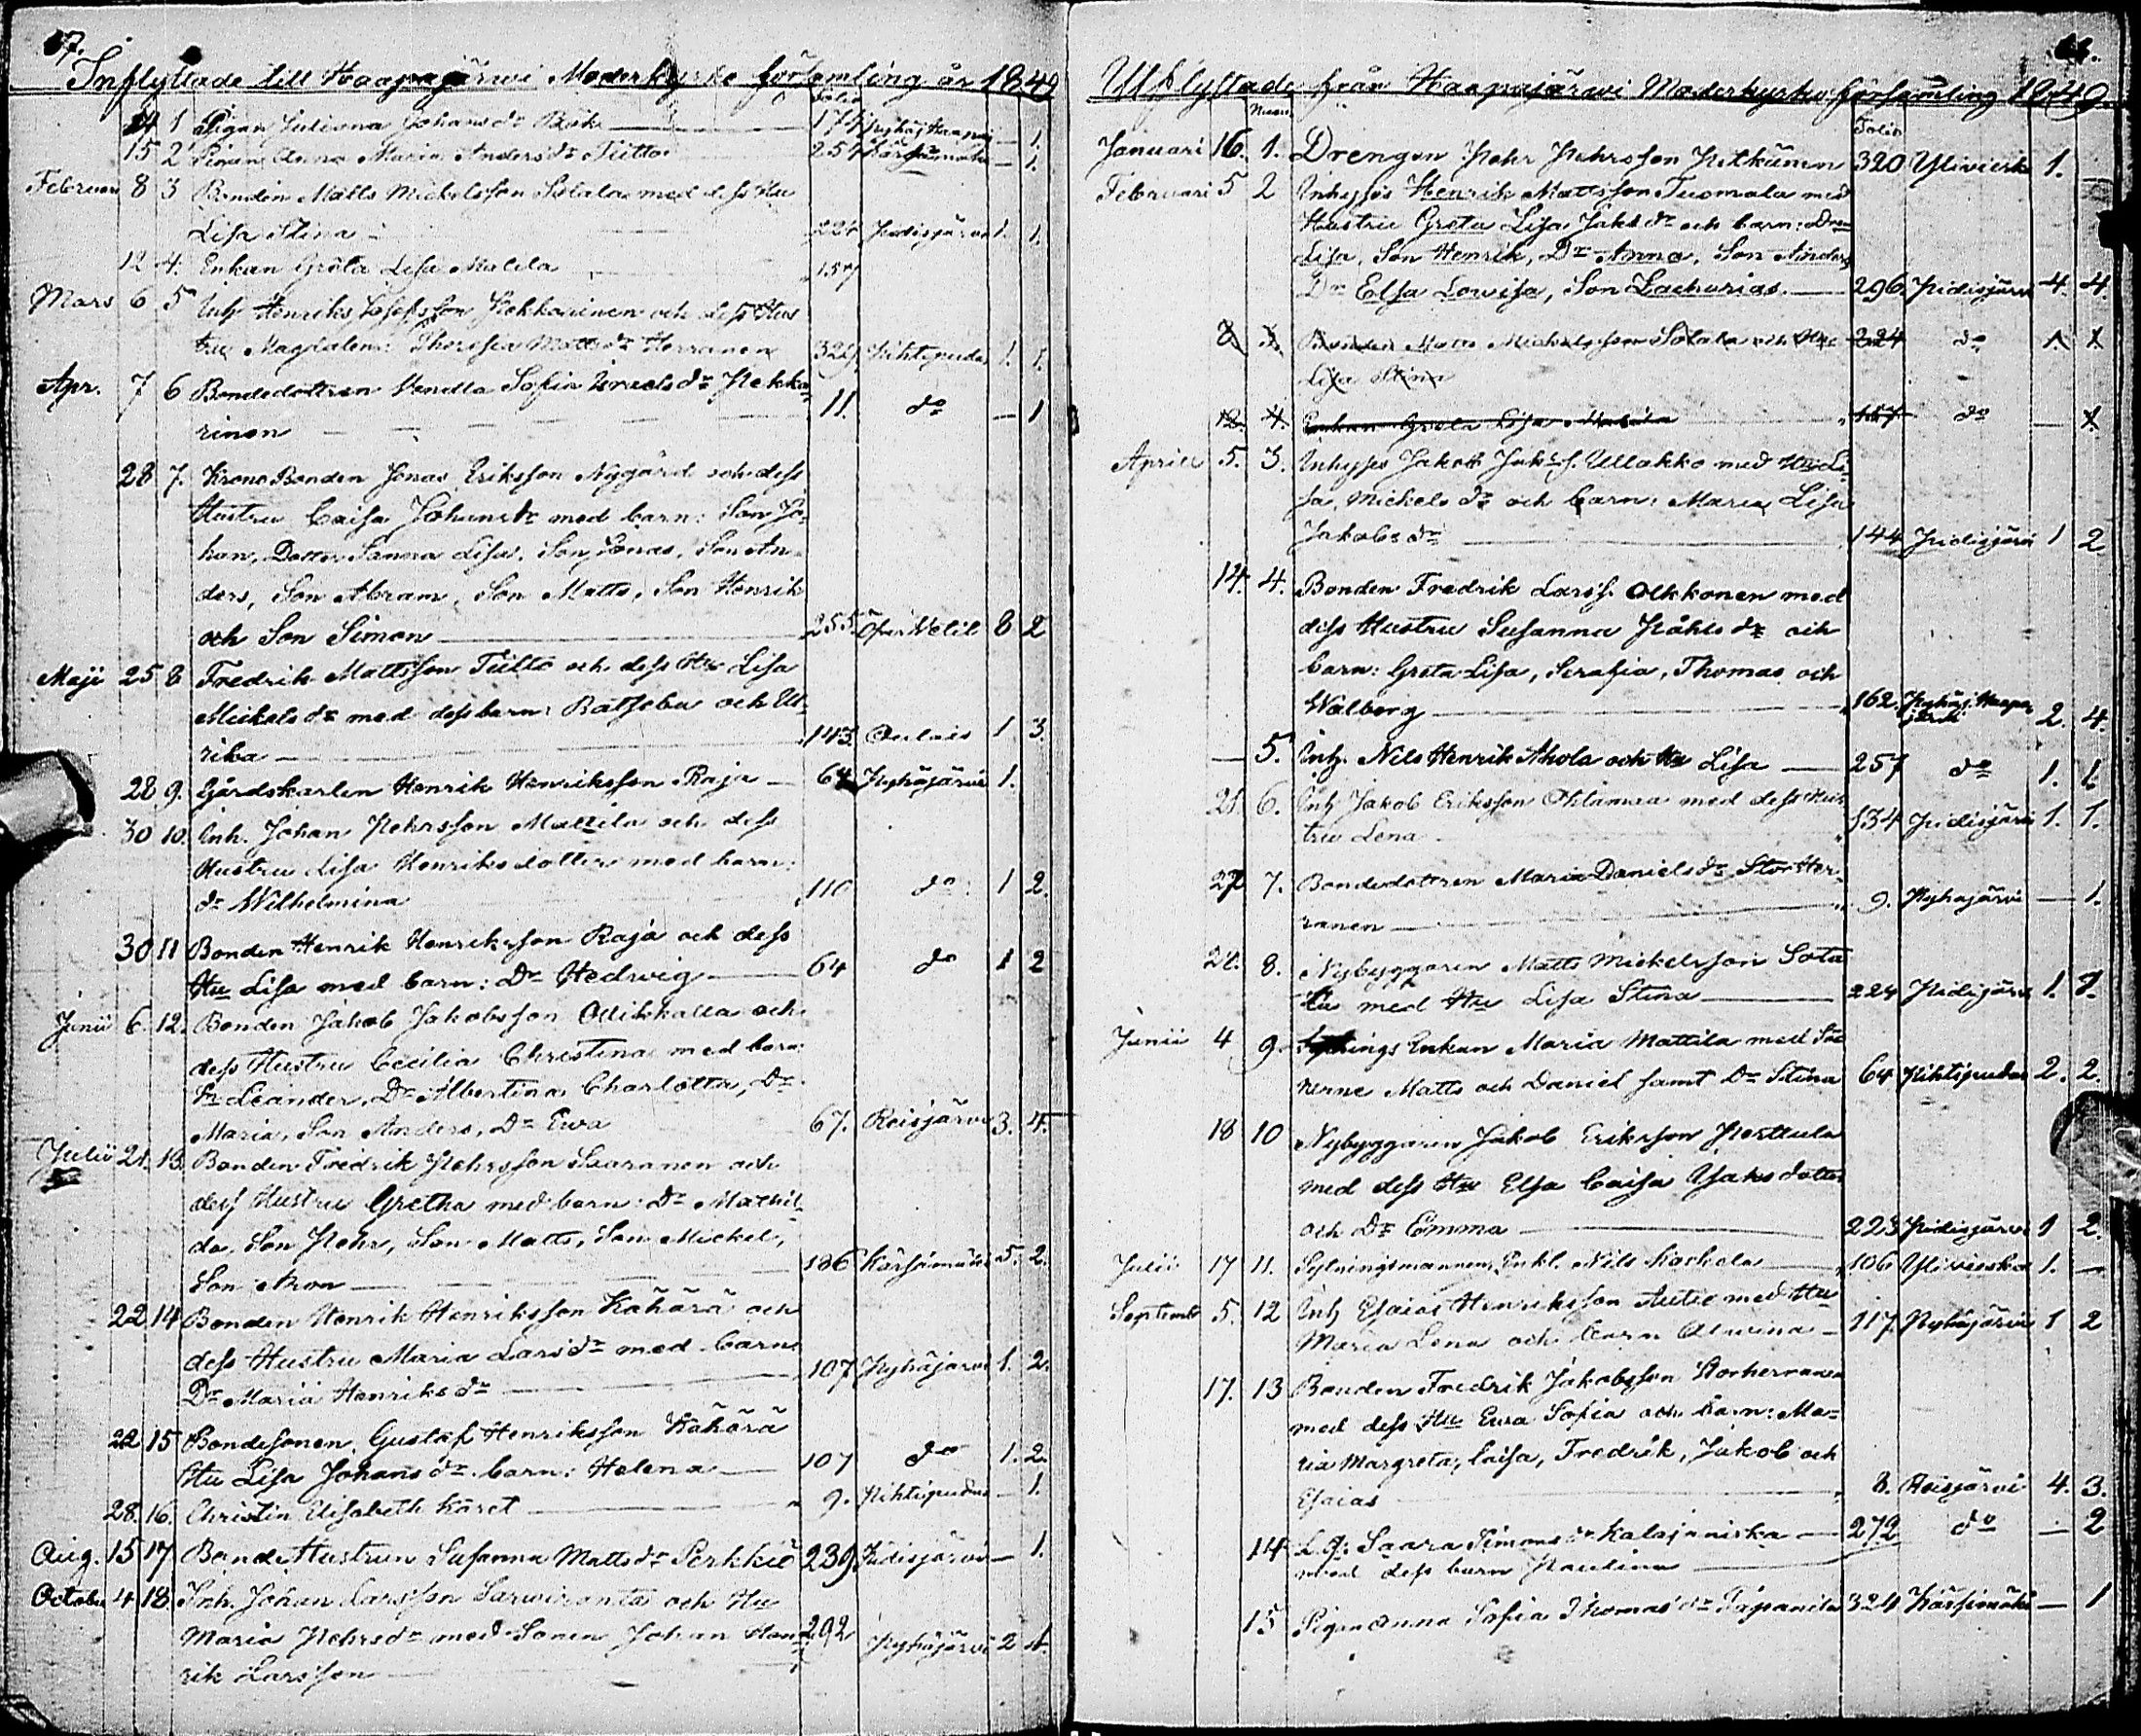 67.
Inflyttade till Haapajärwi Moderkyrko församling år 1849
Folio
14 1 Pigan Juliana Johansdr 174 Pyhäj. Haapaj — 1.
15 2 Pigan Anna Maria Andersdr Tiitto 257 Kärsämäki — 1.
Februari 8 3 Bonden Matts Mickelsson Sotala med dess Hu
Lisa Stina — 224 Pidisjärvi 1. 1.
12 4. Enkan Greta Lisa Mattila 157
Mars 6 5 Inh Henrik Josefsson Pekkarinen och dess Hus
tru Magdalena Theresia Mattsdr Herranen 329 Pihtipudas 1. 1.
Apr. 7 6 Bondedottren Vendla Sofia Israelsdr Pekka=
rinen — 11. do — 1
28 7. Krono Bonden Jonas Eriksson Nygård och dess
Hustru Caisa Johansdr med barn: Son Jo-
han, Dotter Sanna Lisa, Son Jonas, Son An-
ders, Son Abram, Son Matts, Son Henrik
och Son Simon — 255. Öfver Wetil 8 2
Maji 25 8 Fredrik Mattsson Tiitto och dess Hu Lisa
Mickelsdr med dess barn: Batseba och Ul-
rika — 143. Oulais 1 3.
28 9. Gårdskarlen Henrik Henriksson Raja — 64 Pyhäjärvi 1.
30 10. Inh. Johan Pehrsson Mattila och dess
Hustru Lisa Henriksdotter med barn:
dr Wilhelmina 110 do 1 2.
30 11 Bonden Henrik Henriksson Raja och dess
Hu Lisa med barn: Dr Hedwig — 64 do 1 2
Junii 6. 12. Bonden Jakob Jakobsson Ollikkala och
dess Hustru Cecilia Christina med barn:
Sn Leander, Dr Albertina Charlotta, Dr
Maria, Son Anders, Dr Ewa 67. Reisjärvi 3. 4.
Julii 21. 13. Bonden Fredrik Pehrsson Saaranen och
dess Hustru Gretha med barn: Dr Mathil-
da, Son Pehr, Son Matts, Son Mickel,
Son Aron — 186 Kärsämäki 5. 2.
22 14 Bonden Henrik Henriksson Kähärä och
dess Hustru Maria Larsdr med barn
Dr Maria Henriksdr — 107 Pyhäjärvi 1. 2.
22 15 Bondesonen Gustaf Henriksson Kähärä
Hu Lisa Johansdr barn: Helena — 107 do 1. 2.
28. 16. Christin Elisabeth Käret — 9. Pihtipudas — 1.
Aug. 15 17 Bonde Hustrun Susanna Mattsdr Perkkiö 239. Pidisjärvi — 1.
October 4 18. Inh. Johan Larsson Sarwiranta och Hu
Maria Pehrsdr med Sonen Johan Hen-
rik Larsson 292 Pyhäjärvi 2 1.
Utflyttade från Haapajärwi Moderkyrko församling 1849.
Folio
Januari 16. 1. Drengen Pehr Pehrsson Pitkänen 320 Ylivieska 1. —
Februari 5 2 Inhyses Henrik Mattsson Tuomala med
Hustru Greta Lisa Jaksdr och barn: Dr
Lisa, Son Henrik, Dr Anna, Son Anders
Dr Elsa Lowisa, Son Zacharias. — 296. Pidisjärvi 4. 4.
8 3 Bonden Matts Mickelsson Sotala och Hu 224 do 1. 1.
Lisa Stina
12. 4. Enkan Greta Lisa Mattila 157 do — 1.
Aprill 5. 3. Inhyses Jakob Jaks. Ullakko med Hu Li-
sa Mickelsdr och barn: Maria Lisa
Jakobsdr — 144 Pidisjärvi 1 2
14. 4. Bonden Fredrik Larss. Olkkonen med
dess Hustru Susanna Påhlsdr och
barn: Greta Lisa, Serafia, Thomas och
Walborg — 162. Pyhäj. Haapajärvi 2. 4.
— 5. Inh. Nils Henrik Ahola och Hu Lisa — 257 do 1. 1.
21. 6. Inh Jakob Eriksson Ohlamaa med dess Hus
tru Lena 134 Pidisjärvi 1. 1.
27 7. Bondedottren Maria Danielsdr Stor Her-
ranen — 9. Pyhäjärvi — 1.
28. 8. Nybyggaren Matts Mickelsson Sota
la med Hu Lisa Stina — 224 Pidisjärvi 1. 1.
Junii 4 9. Sytnings Enkan Maria Mattila med Sö
nerne Matts och Daniel samt Dr Stina 64 Pihtipudas 2. 2.
18 10 Nybyggaren Jakob Eriksson Perttula
med dess Hu Elsa Caisa Isaksdotter
och Dr Emma — 223 Pidisjärvi 1 2.
Julii 17 11. Sytningsmannen, Enkl. Nils Koskela — 106 Ylivieska 1. —
Septemb 5. 12 Inh Esaias Henriksson Autio med Hu
Maria Lena och barn Alwina — 117. Pyhäjärvi 1 2
17. 13 Bonden Fredrik Jakobsson Storherranen
med dess Hu Ewa Sofia och barn: Ma=
ria Margreta, Caisa, Fredrik, Jakob och
Esaias 8. Reisjärvi 4. 3.
14 L.q: Saara Simonsdr Kalajaniska — 272 do — 2
med dess barn Paulina —
15 Pigan Anna Sofia Thomasdr Tapanila 324 Kärsämäki — 1